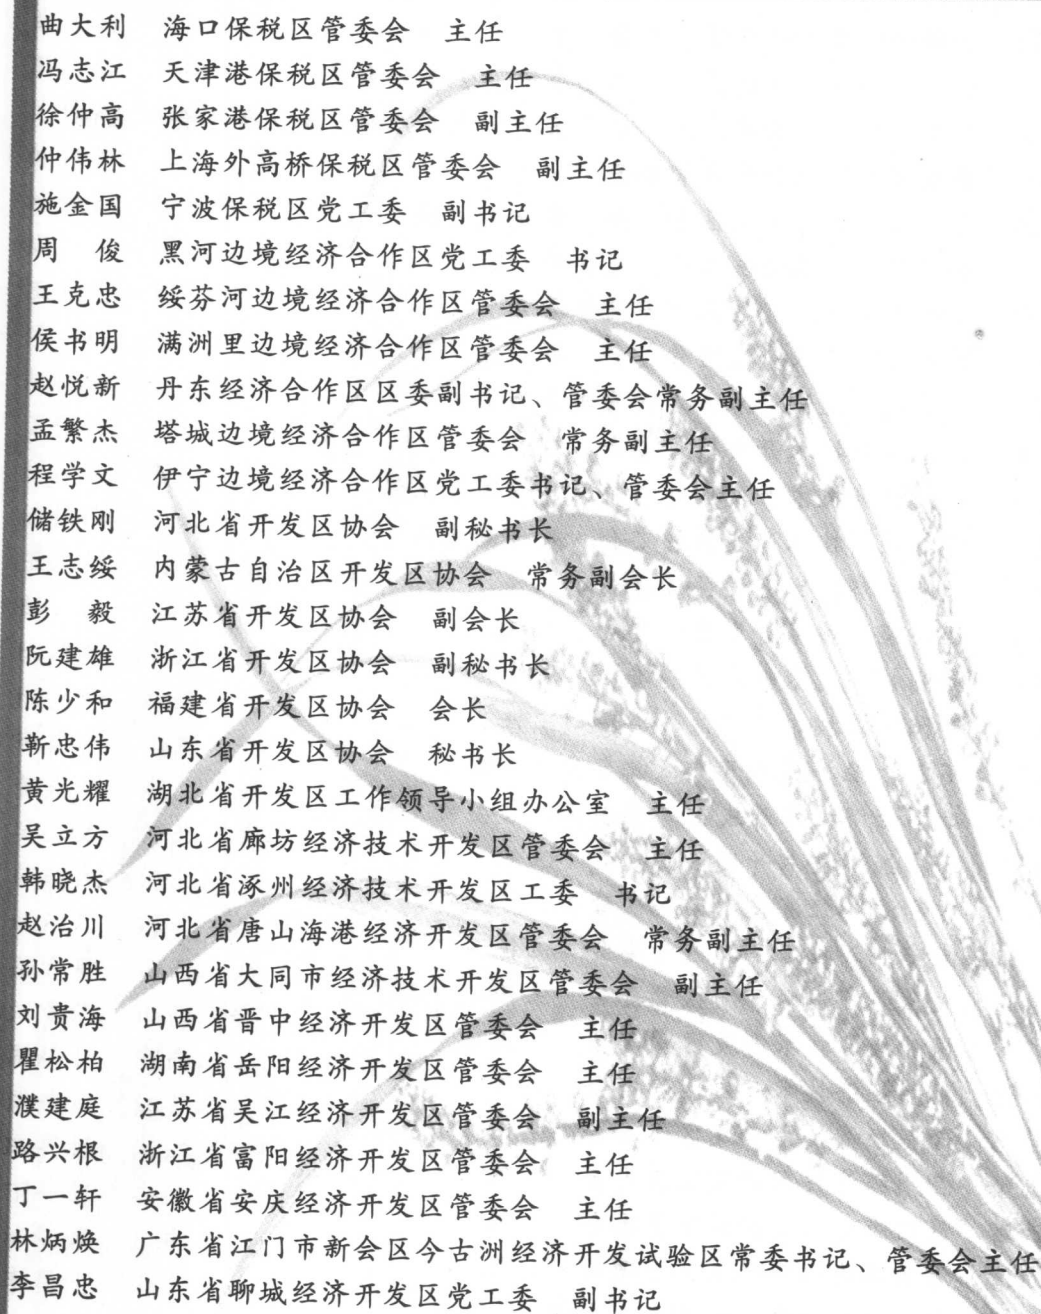 曲大利 海口保税区管委会 主任
冯志江 天津港保税区管委会 主任
徐仲高 张家港保税区管委会 副主任
仲伟林 上海外高桥保税区管委会 副主任
施金国 宁波保税区党工委 副书记
周 俊 黑河边境经济合作区党工委 书记
王克忠 绥芬河边境经济合作区管委会 主任
侯书明 满洲里边境经济合作区管委会 主任
赵悦新 丹东经济合作区区委副书记、管委会常务副主任
孟繁杰 塔城边境经济合作区管委会 常务副主任
程学文 伊宁边境经济合作区党工委书记、管委会主任
储铁刚 河北省开发区协会 副秘书长
王志绥 内蒙古自治区开发区协会 常务副会长
彭 毅 江苏省开发区协会 副会长
阮建雄 浙江省开发区协会 副秘书长
陈少和 福建省开发区协会 会长
靳忠伟 山东省开发区协会 秘书长
黄光耀 湖北省开发区工作领导小组办公室 主任
吴立方 河北省廊坊经济技术开发区管委会 主任
韩晓杰 河北省涿州经济技术开发区工委 书记
赵治川 河北省唐山海港经济开发区管委会 常务副主任
孙常胜 山西省大同市经济技术开发区管委会 副主任
刘贵海 山西省晋中经济开发区管委会 主任
瞿松柏 湖南省岳阳经济开发区管委会 主任
濮建庭 江苏省吴江经济开发区管委会 副主任
路兴根 浙江省富阳经济开发区管委会 主任
丁一轩 安徽省安庆经济开发区管委会 主任
林炳焕 广东省江门市新会区今古洲经济开发试验区常委书记、管委会主任
李昌忠 山东省聊城经济开发区党工委 副书记